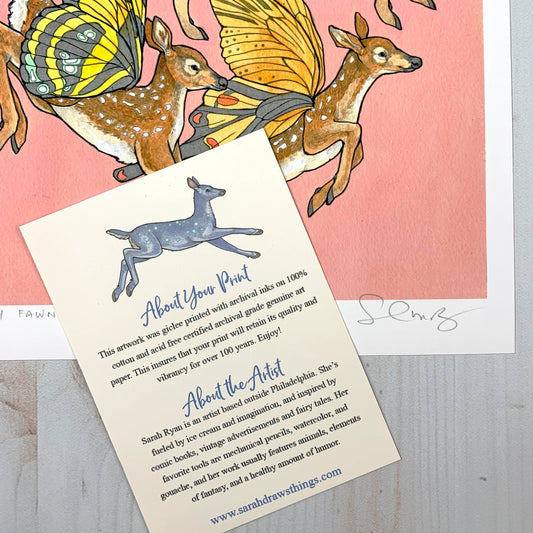 FAWN
About Your Print
This artwork was giclee printed with archival inks on 100%
cotton and acid free certified archival grade genuine art
paper. This insures that your print will retain its quality and
vibrancy for over 100 years. Enjoy!
About the Artist
Sarah Ryan is an artist based outside Philadelphia. She's
fueled by ice cream and imagination, and inspired by
comic books, vintage advertisements and fairy tales. Her
favorite tools are mechanical pencils, watercolor, and
gouache, and her work usually features animals, elements
of fantasy, and a healthy amount of humor.
www.sarahdrawsthings.com